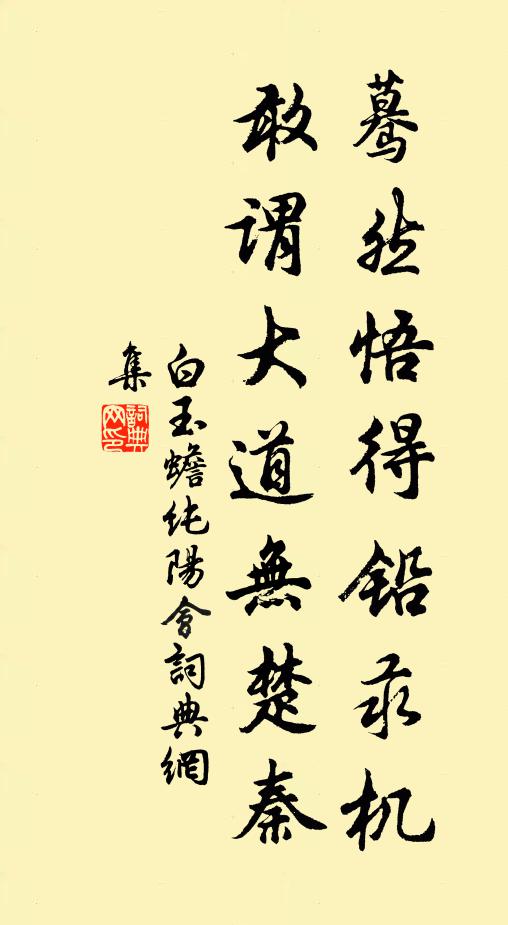 驀然悟得鉛汞机
敢謂大道無楚秦
白玉蟾純陽會詞典網
集
詞典
网印